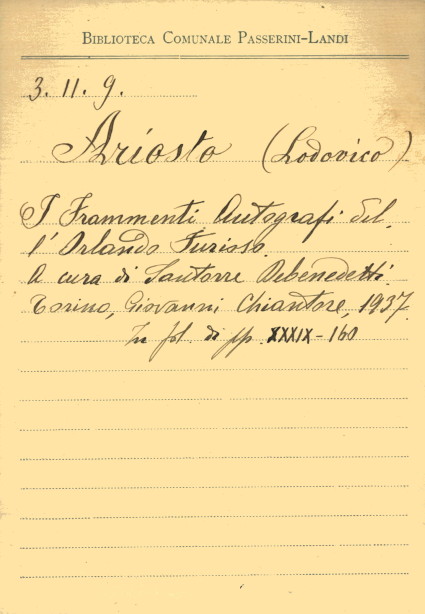 BIBLIOTECA COMUNALE PASSERINI-LANDI
3. 11. 9.
Ariosto (Lodovico)
I Frammenti Autografi del
l'Orlando Furioso.
A cura di Santorre Debenedetti.
Torino, Giovanni Chiantore, 1937.
In fol. di pp. XXXIX-160